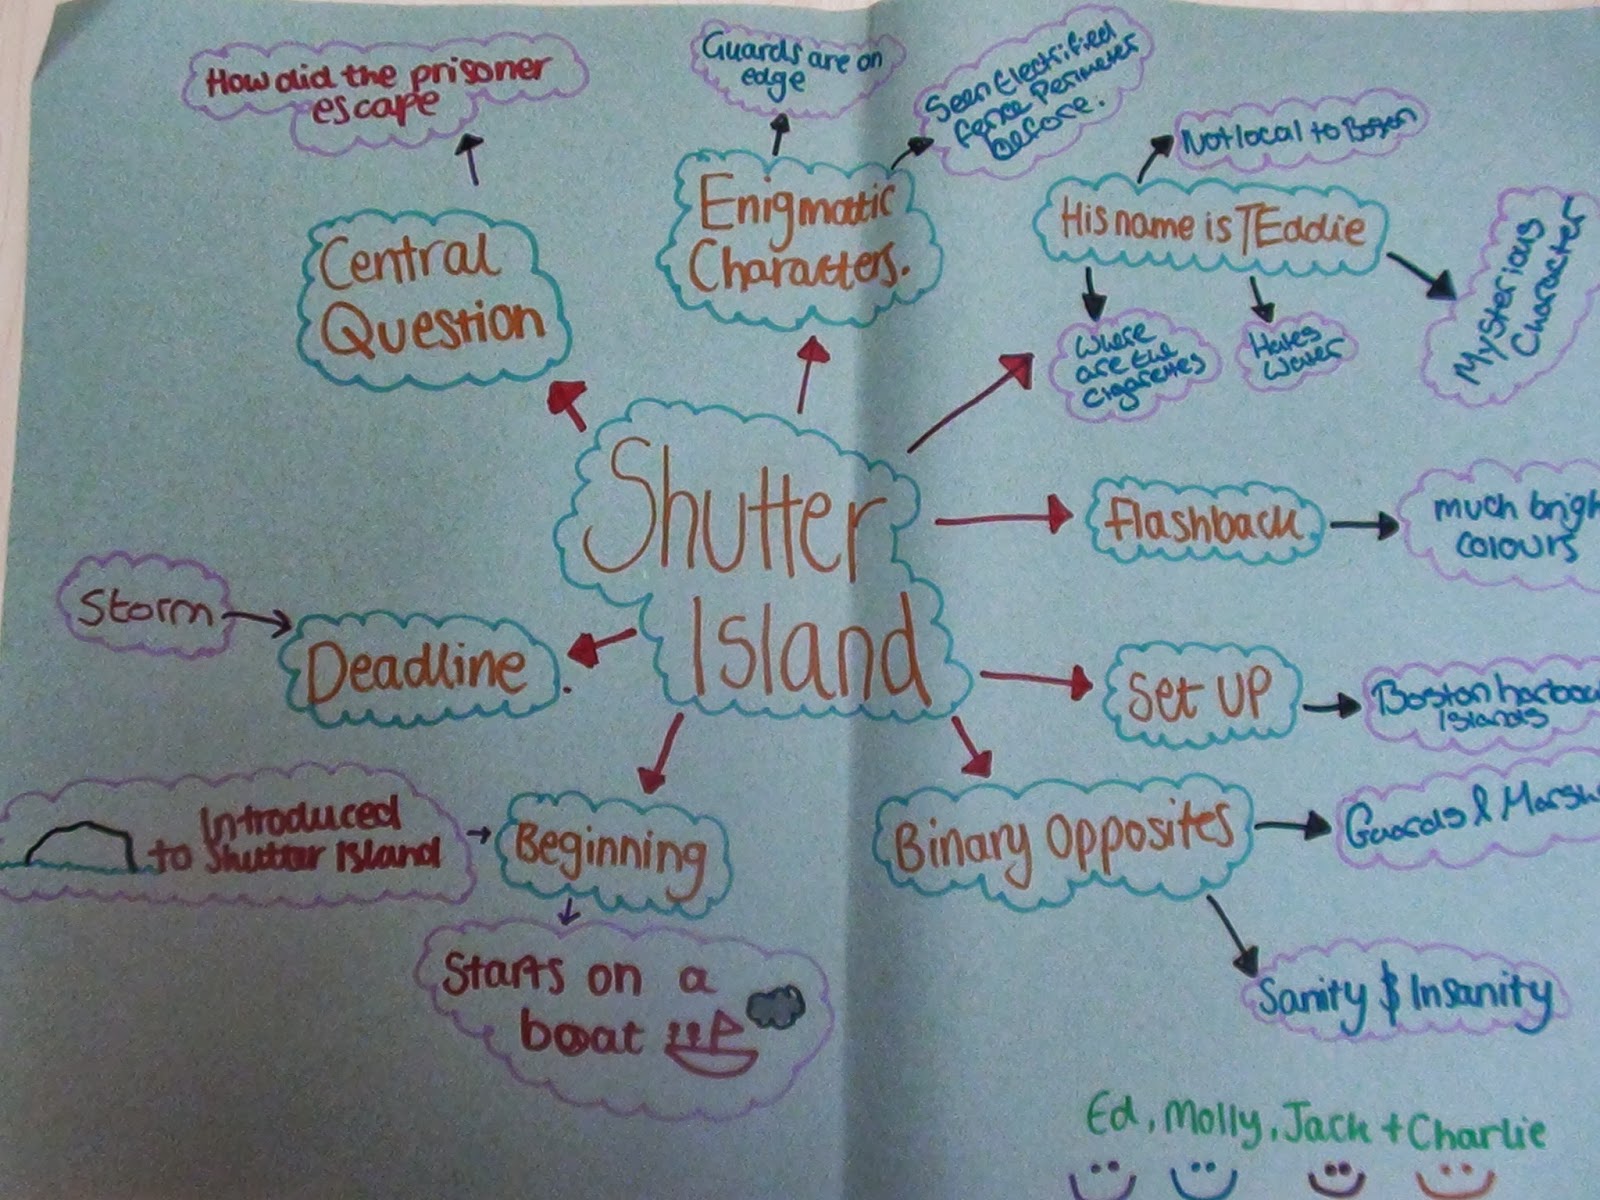 How did the prisoner
escape
Guards are on
edge
Seen Electrified
fence Perimeter
before.
Not local to Boson
Central
Question
Enigmatic
Characters.
His name is TEddie
Mysterious
Character
Where
are the
cigarettes
Hates
Water
Shutter
Island
flashback
much brigh
colours
Storm
Deadline.
Set UP
Boston harbou
Islands
Introduced
to Shutter Island
Beginning
Binary Opposites
Guards & Marsh
Starts on a
boat
Sanity & Insanity
Ed, Molly, Jack + Charlie